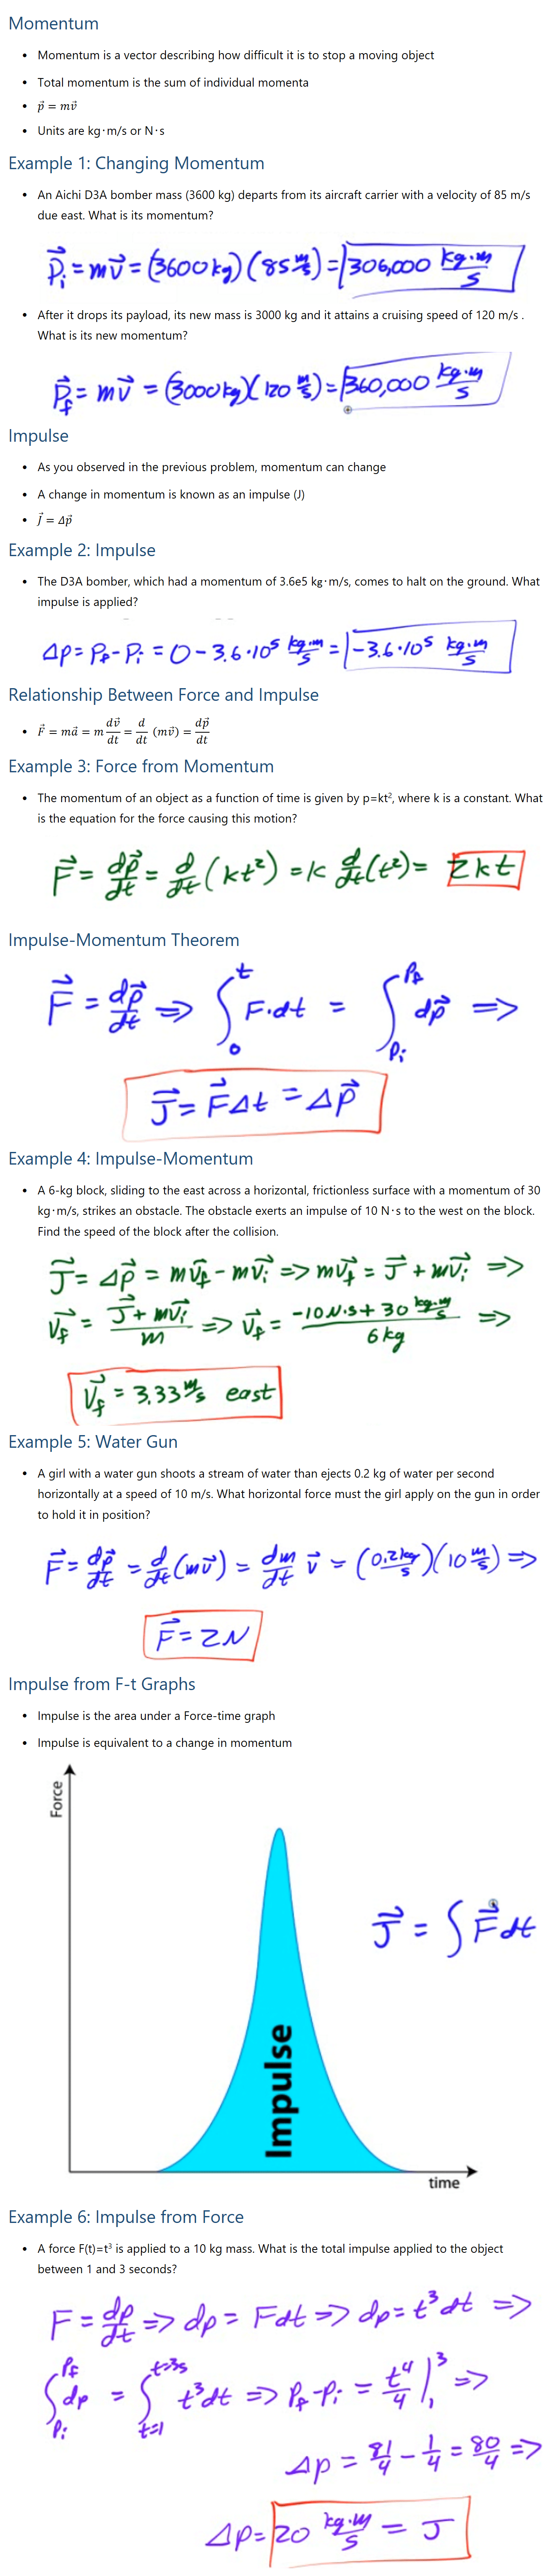 Momentum
• Momentum is a vector describing how difficult it is to stop a moving object
• Total momentum is the sum of individual momenta
• p⃗ = mv⃗
• Units are kg·m/s or N·s
Example 1: Changing Momentum
• An Aichi D3A bomber mass (3600 kg) departs from its aircraft carrier with a velocity of 85 m/s
due east. What is its momentum?
p⃗ᵢ = mv⃗ = (3600kg)(85 m/s) = 306,000 kg·m/s
• After it drops its payload, its new mass is 3000 kg and it attains a cruising speed of 120 m/s .
What is its new momentum?
p⃗_f = mv⃗ = (3000kg)(120 m/s) = 360,000 kg·m/s
Impulse
• As you observed in the previous problem, momentum can change
• A change in momentum is known as an impulse (J)
• J⃗ = Δp⃗
Example 2: Impulse
• The D3A bomber, which had a momentum of 3.6e5 kg·m/s, comes to halt on the ground. What
impulse is applied?
Δp = p_f - pᵢ = 0 - 3.6·10⁵ kg·m/s = -3.6·10⁵ kg·m/s
Relationship Between Force and Impulse
• F⃗ = ma⃗ = m dv⃗/dt = d/dt (mv⃗) = dp⃗/dt
Example 3: Force from Momentum
• The momentum of an object as a function of time is given by p=kt², where k is a constant. What
is the equation for the force causing this motion?
F⃗ = dp⃗/dt = d/dt (kt²) = k d/dt (t²) = 2kt
Impulse-Momentum Theorem
F⃗ = dp⃗/dt ⇒ ∫₀ᵗ F·dt = ∫_{pᵢ}^{p_f} dp⃗ ⇒
J⃗ = F⃗Δt = Δp⃗
Example 4: Impulse-Momentum
• A 6-kg block, sliding to the east across a horizontal, frictionless surface with a momentum of 30
kg·m/s, strikes an obstacle. The obstacle exerts an impulse of 10 N·s to the west on the block.
Find the speed of the block after the collision.
J⃗ = Δp⃗ = mv⃗_f - mv⃗ᵢ ⇒ mv⃗_f = J⃗ + mv⃗ᵢ ⇒
v⃗_f = (J⃗ + mv⃗ᵢ)/m ⇒ v⃗_f = (-10 N·s + 30 kg·m/s)/6kg ⇒
v⃗_f = 3.33 m/s east
Example 5: Water Gun
• A girl with a water gun shoots a stream of water than ejects 0.2 kg of water per second
horizontally at a speed of 10 m/s. What horizontal force must the girl apply on the gun in order
to hold it in position?
F⃗ = dp⃗/dt = d/dt (mv⃗) = dm/dt v⃗ = (0.2 kg/s)(10 m/s) ⇒
F⃗ = 2N
Impulse from F-t Graphs
• Impulse is the area under a Force-time graph
• Impulse is equivalent to a change in momentum
Force
J⃗ = ∫F⃗dt
Impulse
time
Example 6: Impulse from Force
• A force F(t)=t³ is applied to a 10 kg mass. What is the total impulse applied to the object
between 1 and 3 seconds?
F = dp/dt ⇒ dp = Fdt ⇒ dp = t³dt ⇒
∫_{pᵢ}^{p_f} dp = ∫_{t=1}^{t=3s} t³dt ⇒ p_f - pᵢ = t⁴/4 |₁³ ⇒
Δp = 81/4 - 1/4 = 80/4 ⇒
Δp = 20 kg·m/s = J